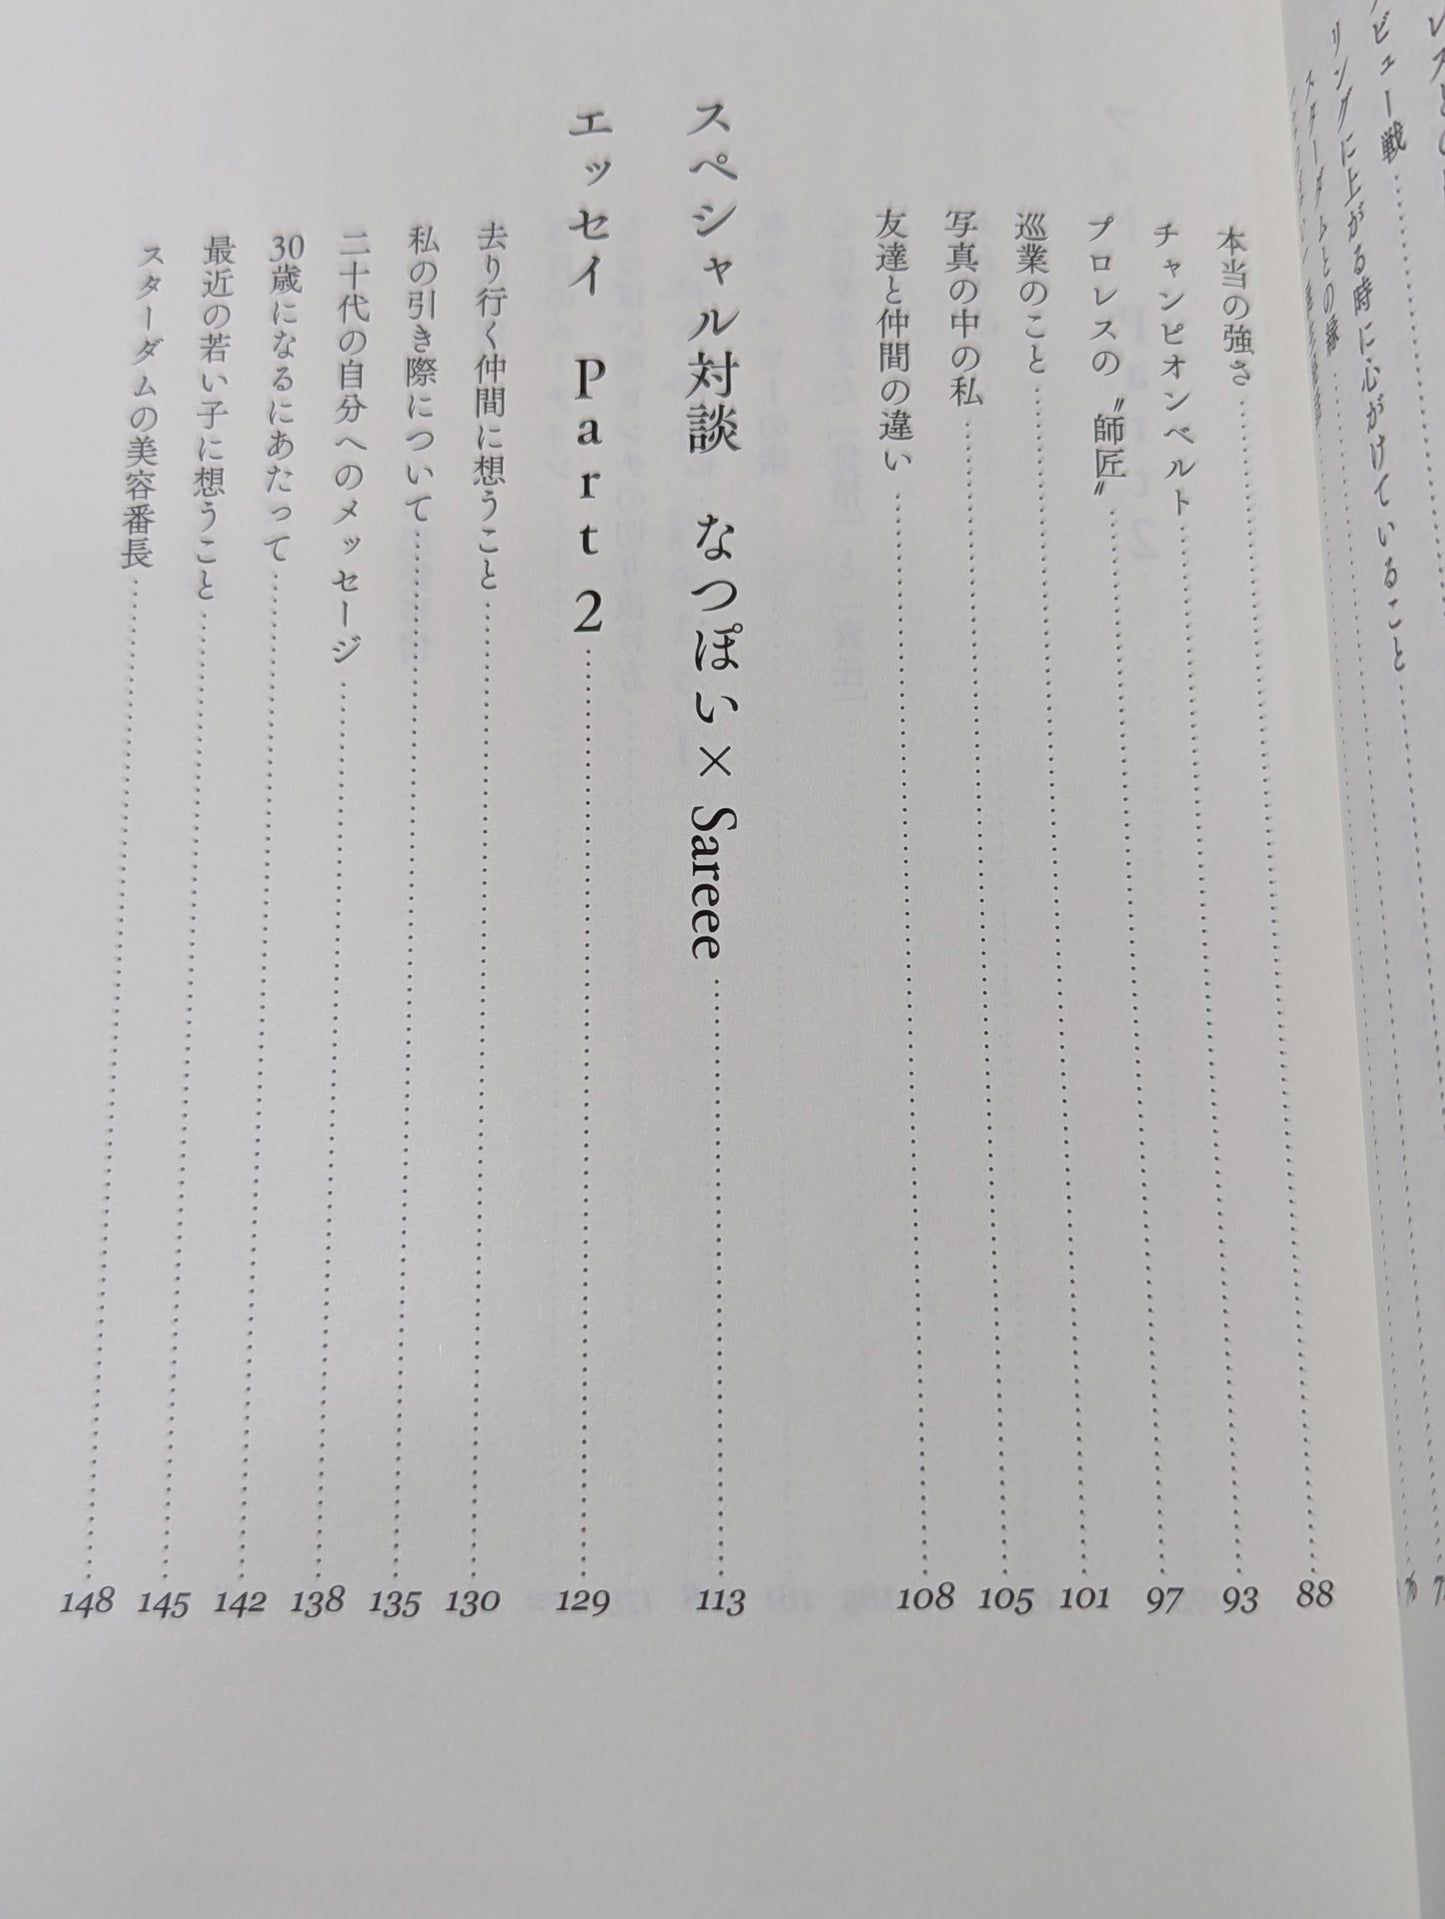 ビュー戦
リングに上がる時に心がけていること
スターダムとの縁 76
本当の強さ 88
チャンピオンベルト 93
プロレスの〝師匠〟 97
巡業のこと 101
写真の中の私 105
友達と仲間の違い 108
スペシャル対談 なつぽい×Sareee 113
エッセイ Part 2 129
去り行く仲間に想うこと 130
私の引き際について 135
二十代の自分へのメッセージ 138
30歳になるにあたって 142
最近の若い子に想うこと 145
スターダムの美容番長 148